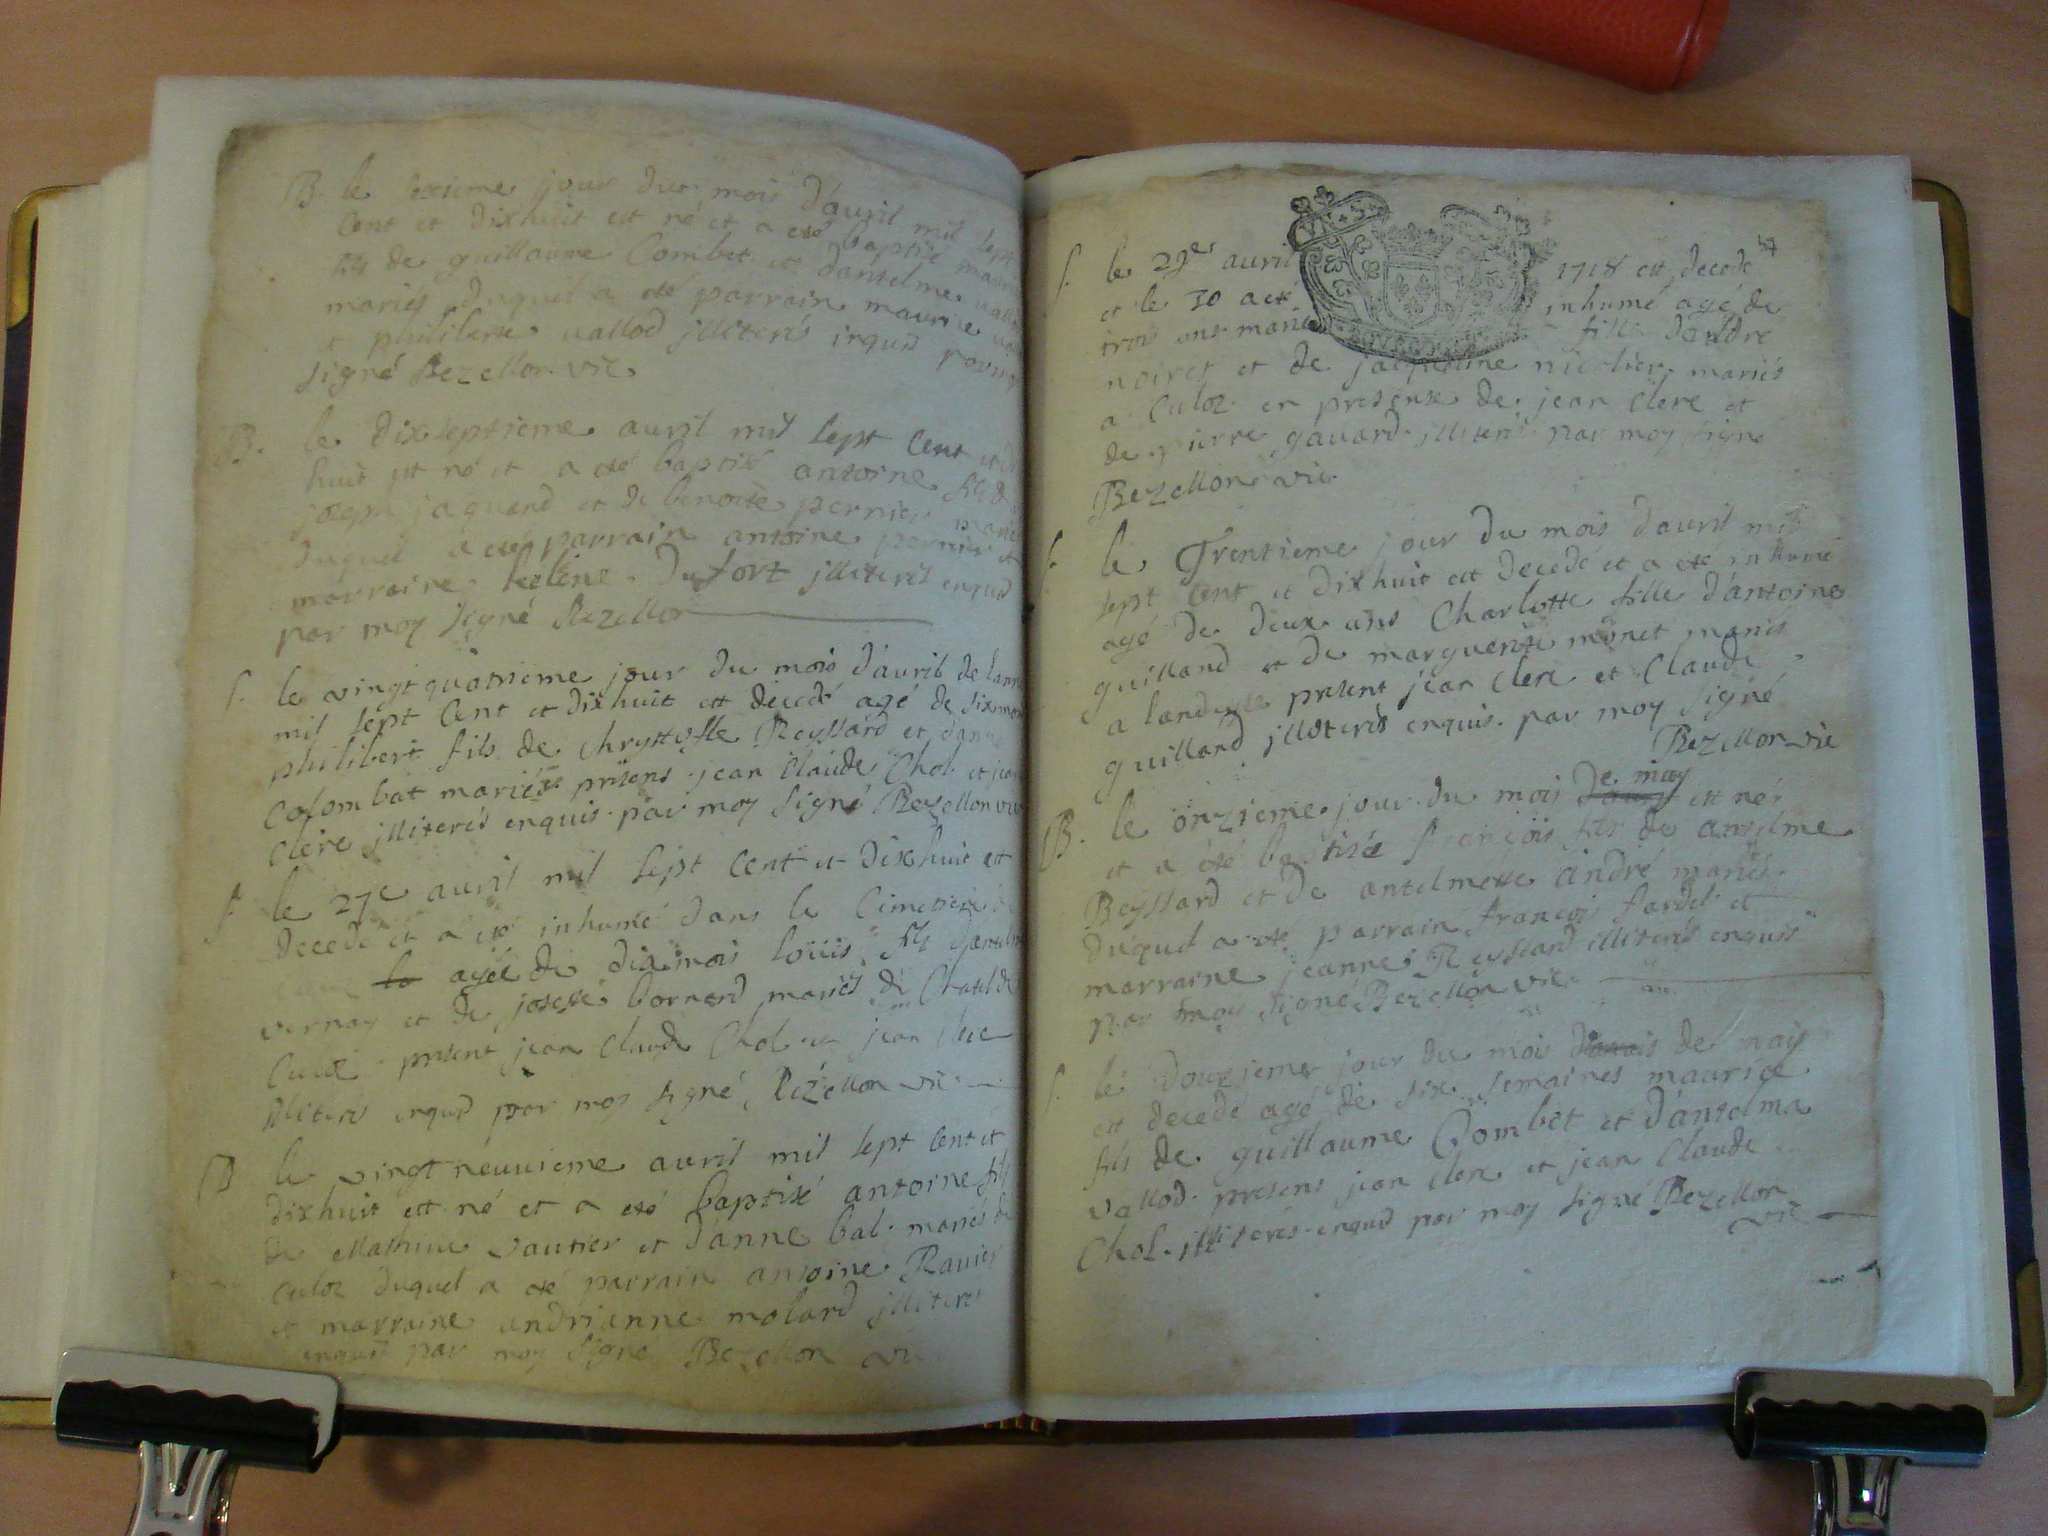 B. le sixieme jour du mois d'auril mil sept
Cent et dixhuit est né et a eté baptisé
fils de guillaume Combet et d'antelme
mariés duquel a eté parrain maurice
et philiberte vallod illiterés inquis par moy
signé Bezellon vic
B. le dixseptieme auril mil sept Cent et
huit est né et a eté baptisé antoine fils de
joseph jaquand et de benoite pernier mariés
duquel a eté parrain antoine pernier et
marraine helene dufort illiterés enquis
par moy signé Bezellon
S. le vingt quatrieme jour du mois d'auril de l'anne
mil sept Cent et dixhuit est decedé agé de six mois
philibert fils de Chrystofle Reyssard et d'anne
Colombat mariés presens jean Claude Chol et jean
Clerc illiterés enquis par moy signé Bezellon vic
S. le 27e auril mil sept Cent et dixhuit est
decedé et a eté inhumé dans le Cimetiere de
agée de dix mois loüis fils d'antelme
vernay et de josefté bornard mariés de
present jean Claude Chol et jean Clerc
illiterés enquis par moy signé Bezellon vic
B le vingt neuuieme auril mil sept Cent et
dixhuit est né et a eté baptisé antoine fils
de Mathieu vautier et d'anne bal mariés de
Culoz duquel a eté parrain antoine Rauier
et marraine andrianne molard illiterés
enquis par moy signé Bezellon vic
47
S. le 29e auril 1718 est decedé
et le 30 a eté inhumé agé de
trois ans marie fille d'andre
noiret et de jacqueline nicolier mariés
a Culoz en presense de jean Clerc et
de pierre gauard illiterés par moy signé
Bezellon vic
S. le Trentieme jour du mois d'auril mil
sept Cent et dixhuit est decedé et a eté inhumé
agé de deux ans Charlotte fille d'antoine
guilland et de marguerite monet mariés
a present jean Clerc et Claude
guilland illiterés enquis par moy signé
Bezellon vic
B. le onzieme jour du mois de may est né
et a eté baptisé françois fils de antelme
Beyssard et de antelmette andré mariés
duquel a eté parrain françois fardel et
marraine jeanne Reyssard illiterés enquis
par moy signé Bezellon vic
S. le douzieme jour du mois de may
est decedé agé de six semaines maurice
fils de guillaume Combet et d'antelma
vallod presens jean Clerc et jean Claude
Chol illiterés enquis par moy signé Bezellon
vic